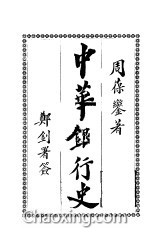 周葆鑾著
中華銀行史
鄭釗署簽
chaoxing.com